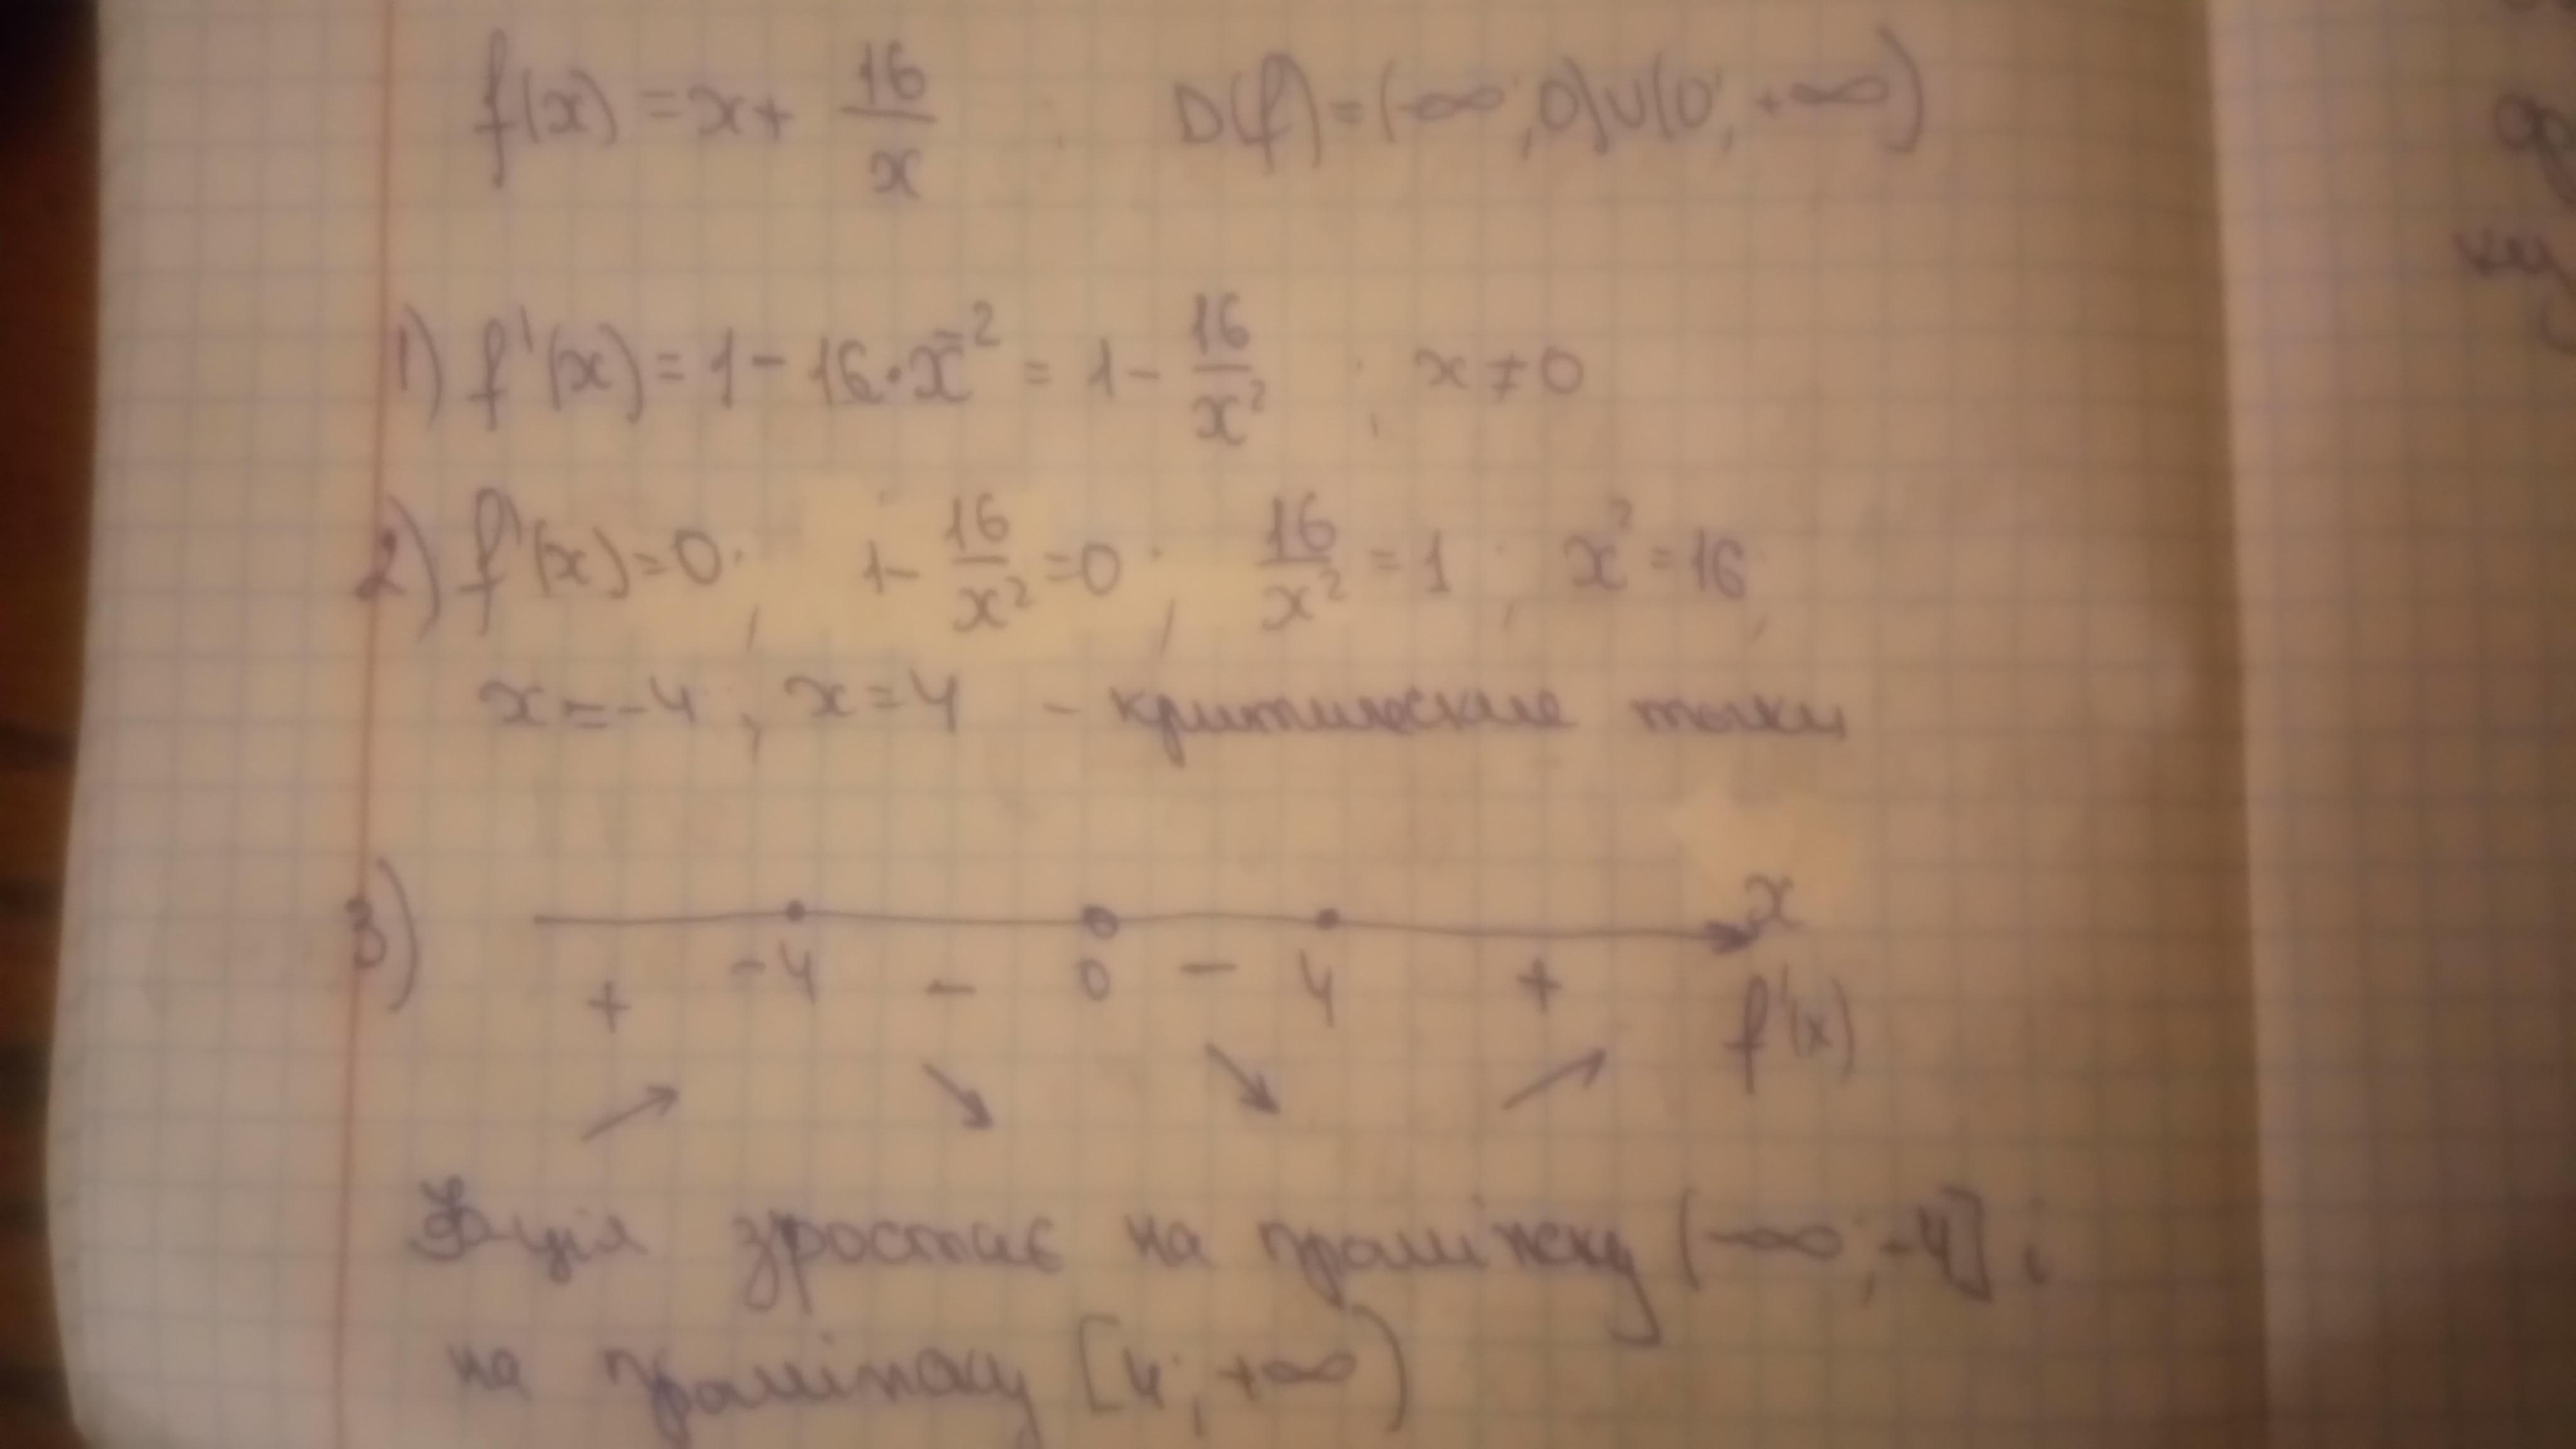 f(x) = x + 16/x ; D(f) = (-∞; 0) ∪ (0; +∞)
1) f'(x) = 1 - 16·x⁻² = 1 - 16/x² ; x ≠ 0
2) f'(x) = 0; 1 - 16/x² = 0; 16/x² = 1; x² = 16;
x = -4; x = 4 - критические точки
3) x
-4 0 4
+ - - + f'(x)
↗ ↘ ↘ ↗
зростає на проміжку (-∞; -4] і
на проміжку [4; +∞)